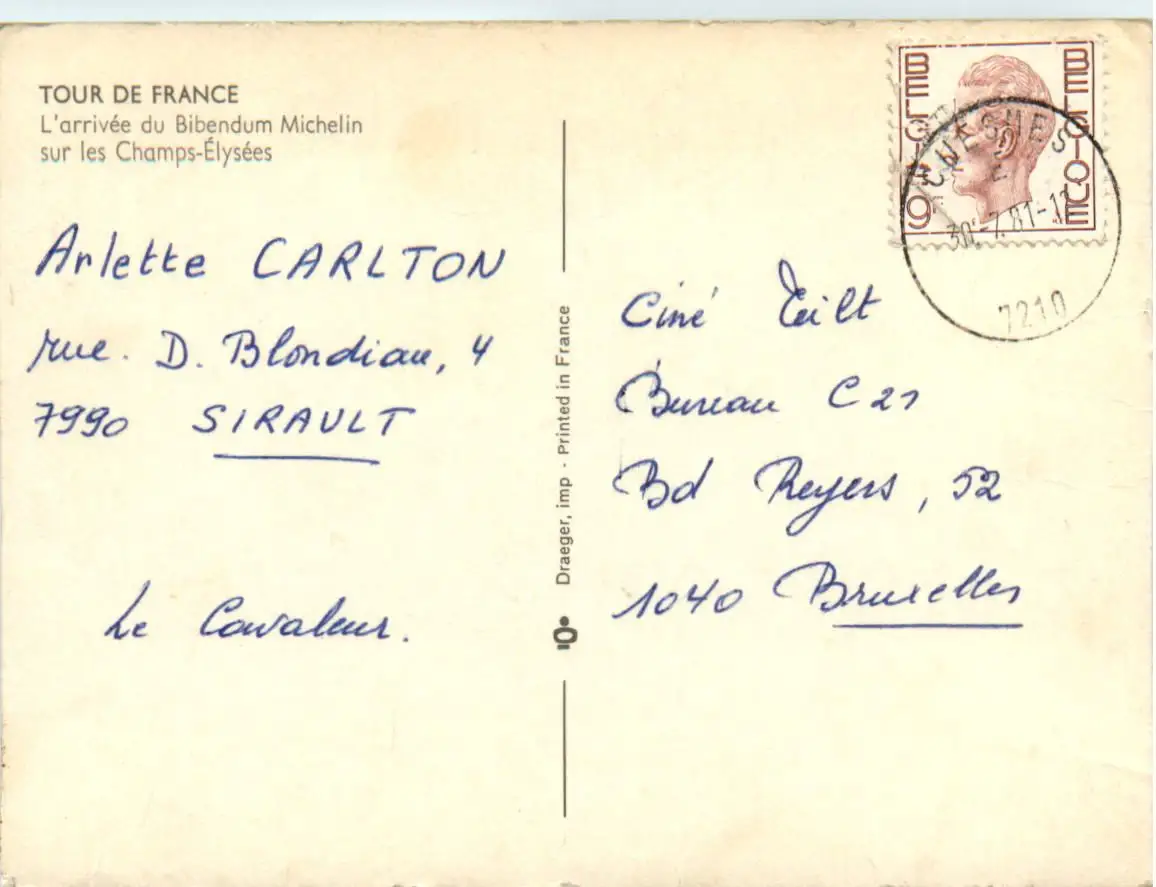 TOUR DE FRANCE
L'arrivée du Bibendum Michelin
sur les Champs-Élysées
Arlette CARLTON
rue. D. Blondiau, 4
7990 SIRAULT
Le Cavaleur.
Draeger, imp - Printed in France
BELGIE
BELGIQUE
9F
CUESMES
30.-7.81-1
7210
Ciné Tilt
Bureau C21
Bd Reyers, 52
1040 Bruxelles